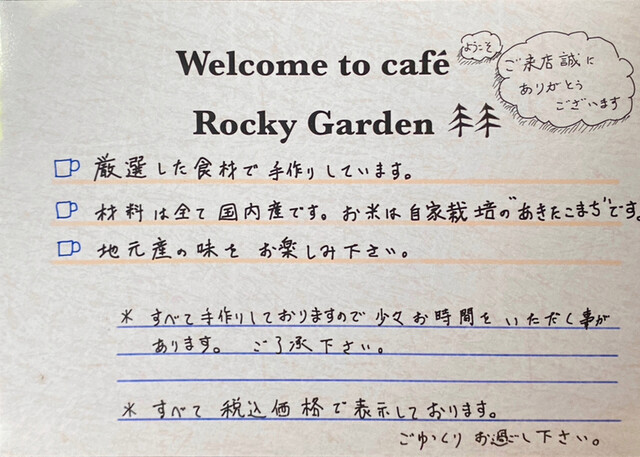 Welcome to café
Rocky Garden
ようこそ
ご来店誠に
ありがとう
ございます
厳選した食材で手作りしています。
材料は全て国内産です。お米は自家栽培の"あきたこまち"です。
地元産の味をお楽しみ下さい。
* すべて手作りしておりますので少々お時間をいただく事が
あります。 ご了承下さい。
* すべて税込価格で表示しております。
ごゆっくりお過ごし下さい。